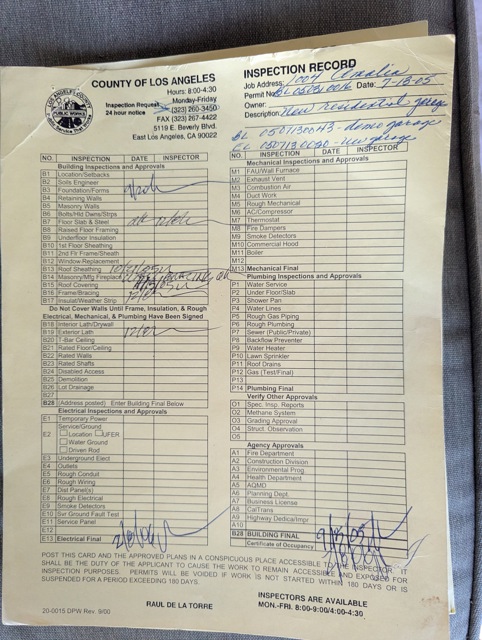 COUNTY OF LOS ANGELES
Hours: 8:00-4:30
Inspection Request Monday-Friday
24 hour notice (323) 260-3450
FAX (323) 267-4422
5119 E. Beverly Blvd.
East Los Angeles, CA 90022
LOS ANGELES COUNTY
PUBLIC WORKS
INSPECTION RECORD
Job Address: 1004 Amalia
Permit No. BL 05071 0016 Date: 7-13-05
Owner:
Description: New residential garage
BL 0507130043 - demo garage
EL 0507130020 - new garage
NO. INSPECTION DATE INSPECTOR
Building Inspections and Approvals
B1 Location/Setbacks
B2 Soils Engineer
B3 Foundation/Forms
B4 Retaining Walls
B5 Masonry Walls
B6 Bolts/Hld Dwns/Strps
B7 Floor Slab & Steel
B8 Raised Floor Framing
B9 Underfloor Insulation
B10 1st Floor Sheathing
B11 2nd Flr Frame/Sheath
B12 Window Replacement
B13 Roof Sheathing
B14 Masonry/Mfg Fireplace
B15 Roof Covering
B16 Frame/Bracing
B17 Insulat/Weather Strip
Do Not Cover Walls Until Frame, Insulation, & Rough
Electrical, Mechanical, & Plumbing Have Been Signed
B18 Interior Lath/Drywall
B19 Exterior Lath
B20 T-Bar Ceiling
B21 Rated Floor/Ceiling
B22 Rated Walls
B23 Rated Shafts
B24 Disabled Access
B25 Demolition
B26 Lot Drainage
B27
B28 (Address posted) Enter Building Final Below
Electrical Inspections and Approvals
E1 Temporary Power
Service/Ground
E2 Location UFER
Water Ground
Driven Rod
E3 Underground Elect
E4 Outlets
E5 Rough Conduit
E6 Rough Wiring
E7 Dist Panel(s)
E8 Rough Electrical
E9 Smoke Detectors
E10 Svr Ground Fault Test
E11 Service Panel
E12
E13 Electrical Final
NO. INSPECTION DATE INSPECTOR
Mechanical Inspections and Approvals
M1 FAU/Wall Furnace
M2 Exhaust Vent
M3 Combustion Air
M4 Duct Work
M5 Rough Mechanical
M6 AC/Compressor
M7 Thermostat
M8 Fire Dampers
M9 Smoke Detectors
M10 Commercial Hood
M11 Boiler
M12
M13 Mechanical Final
Plumbing Inspections and Approvals
P1 Water Service
P2 Under Floor/Slab
P3 Shower Pan
P4 Water Lines
P5 Rough Gas Piping
P6 Rough Plumbing
P7 Sewer (Public/Private)
P8 Backflow Preventer
P9 Water Heater
P10 Lawn Sprinkler
P11 Roof Drains
P12 Gas (Test/Final)
P13
P14 Plumbing Final
Verify Other Approvals
O1 Spec. Insp. Reports
O2 Methane System
O3 Grading Approval
O4 Struct. Observation
O5
Agency Approvals
A1 Fire Department
A2 Construction Division
A3 Environmental Prog.
A4 Health Department
A5 AQMD
A6 Planning Dept.
A7 Business License
A8 CalTrans
A9 Highway Dedica/Impr
A10
B28 BUILDING FINAL
Certificate of Occupancy
POST THIS CARD AND THE APPROVED PLANS IN A CONSPICUOUS PLACE ACCESSIBLE TO THE INSPECTOR. IT
SHALL BE THE DUTY OF THE APPLICANT TO CAUSE THE WORK TO REMAIN ACCESSIBLE AND EXPOSED FOR
INSPECTION PURPOSES. PERMITS WILL BE VOIDED IF WORK IS NOT STARTED WITHIN 180 DAYS OR IS
SUSPENDED FOR A PERIOD EXCEEDING 180 DAYS.
20-0015 DPW Rev. 9/00
RAUL DE LA TORRE
INSPECTORS ARE AVAILABLE
MON.-FRI. 8:00-9:00/4:00-4:30